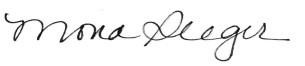 Mona Seeger